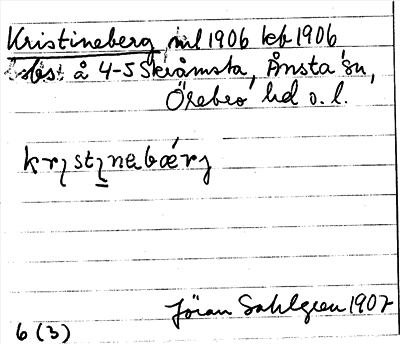 Kristineberg, ml 1906 leb 1906
å 4-5 Skråmsta, Ånsta sn,
Örebro hd o. l.
krɩstɩnebærj
Jöran Sahlgren 1907
6 (3)